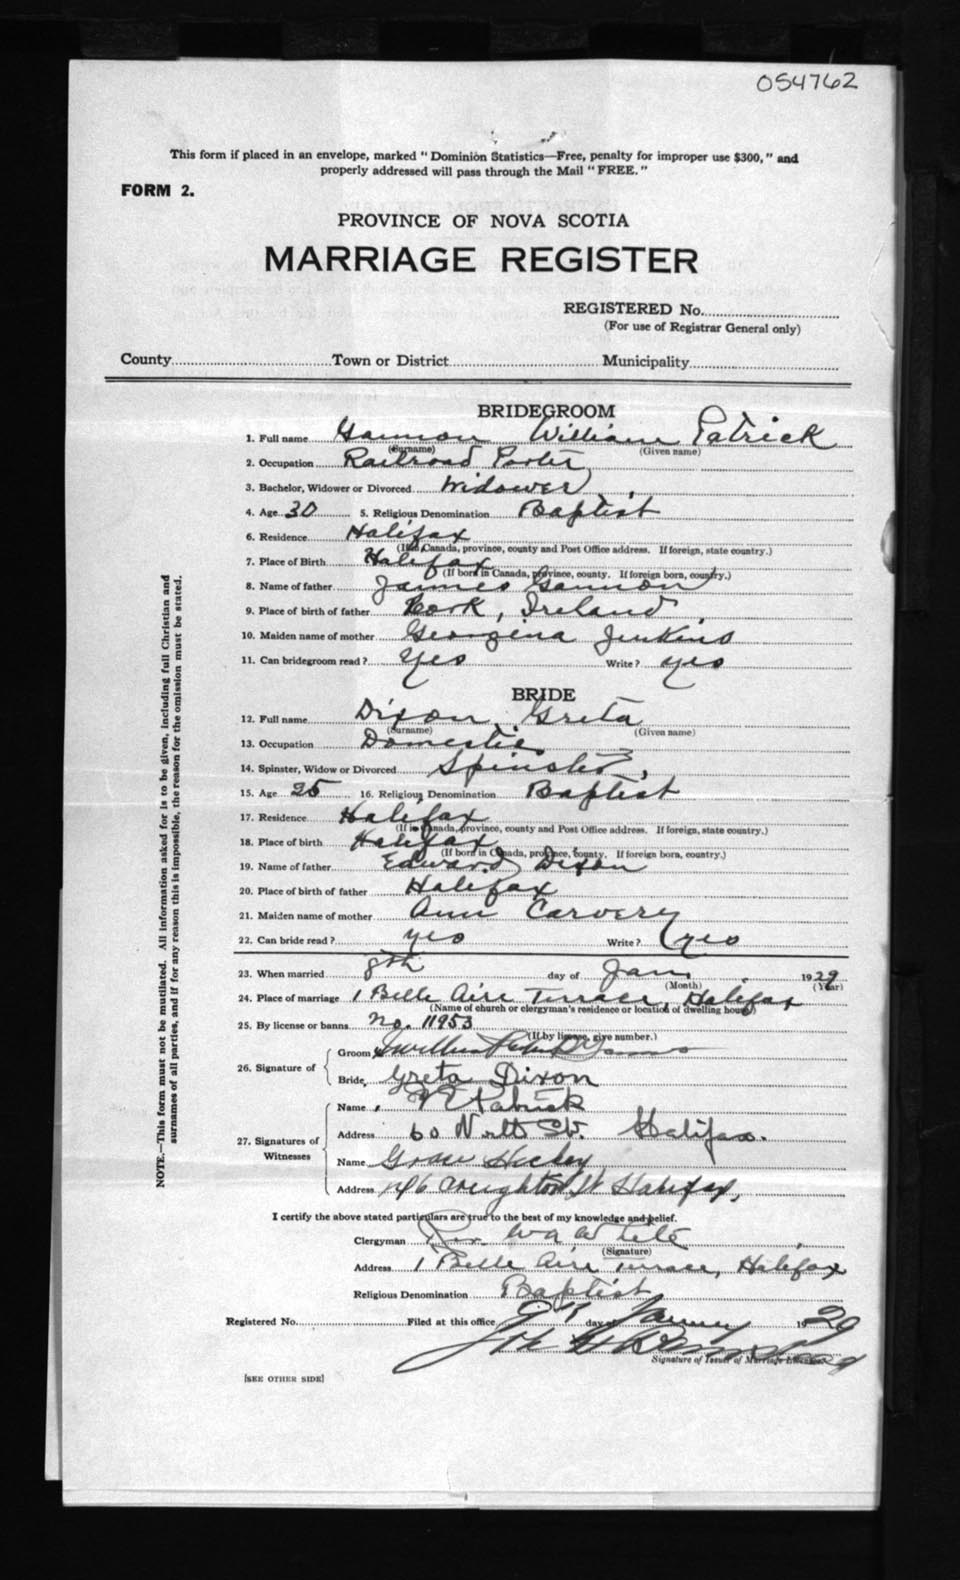 054762
This form if placed in an envelope, marked "Dominion Statistics—Free, penalty for improper use $300," and
properly addressed will pass through the Mail "FREE."
FORM 2.
PROVINCE OF NOVA SCOTIA
MARRIAGE REGISTER
REGISTERED No.
(For use of Registrar General only)
County Town or District Municipality
BRIDEGROOM
1. Full name Gannon William Patrick
(Surname) (Given name)
2. Occupation Railroad Porter
3. Bachelor, Widower or Divorced Widower
4. Age 30 5. Religious Denomination Baptist
6. Residence Halifax
(If in Canada, province, county and Post Office address. If foreign, state country.)
7. Place of Birth Halifax
(If born in Canada, province, county. If foreign born, country.)
8. Name of father James Gannon
9. Place of birth of father Cork, Ireland
10. Maiden name of mother Georgina Jenkins
11. Can bridegroom read? Yes Write? yes
BRIDE
12. Full name Dixon Greta
(Surname) (Given name)
13. Occupation Domestic
14. Spinster, Widow or Divorced Spinster
15. Age 25 16. Religious Denomination Baptist
17. Residence Halifax
(If in Canada, province, county and Post Office address. If foreign, state country.)
18. Place of birth Halifax
(If born in Canada, province, county. If foreign born, country.)
19. Name of father Edward Dixon
20. Place of birth of father Halifax
21. Maiden name of mother Ann Carvery
22. Can bride read? yes Write? yes
23. When married 8th day of Jan. 1929
(Month) (Year)
24. Place of marriage 1 Belle Aire Terrace, Halifax
(Name of church or clergyman's residence or location of dwelling house)
25. By license or banns No. 11953
(If by license, give number.)
26. Signature of
Groom
Bride, Greta Dixon
27. Signatures of
Witnesses
Name
Address 60 North St. Halifax.
Name Grace Hickey
Address Creighton St Halifax,
I certify the above stated particulars are true to the best of my knowledge and belief.
Clergyman Rev. Wm
(Signature)
Address 1 Belle Aire Terrace, Halifax
Religious Denomination Baptist
Registered No. Filed at this office day of January 1929
Signature of Issuer of Marriage Licenses
[SEE OTHER SIDE]
NOTE.—This form must not be mutilated. All information asked for is to be given, including full Christian and
surnames of all parties, and if for any reason this is impossible, the reason for the omission must be stated.